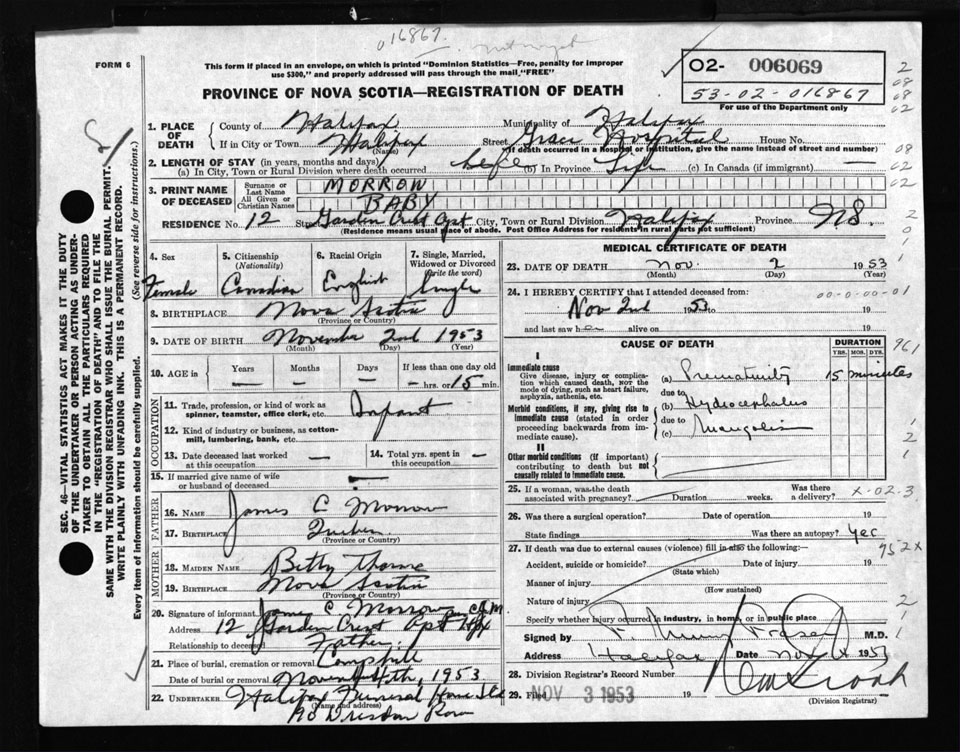 016867.
FORM 6
This form if placed in an envelope, on which is printed "Dominion Statistics—Free, penalty for improper
use $300," and properly addressed will pass through the mail "FREE"
PROVINCE OF NOVA SCOTIA—REGISTRATION OF DEATH
O2- 006069
53-02-016867
For use of the Department only
1. PLACE OF DEATH
County of Halifax Municipality of Halifax
If in City or Town Halifax Street Grace Hospital House No.
(Name) (If death occurred in a Hospital or Institution, give the name instead of street and number)
2. LENGTH OF STAY (in years, months and days)
(a) In City, Town or Rural Division where death occurred Life (b) In Province Life (c) In Canada (if immigrant) —
3. PRINT NAME OF DECEASED
Surname or Last Name MORROW
All Given or Christian Names BABY
RESIDENCE No. 12 Street Garden Crest Apt City, Town or Rural Division Halifax Province N.S.
(Residence means usual place of abode. Post Office Address for residents in rural parts not sufficient)
4. Sex Female
5. Citizenship (Nationality) Canadian
6. Racial Origin English
7. Single, Married, Widowed or Divorced (write the word) Single
8. BIRTHPLACE Nova Scotia
(Province or Country)
9. DATE OF BIRTH November 2nd 1953
(Month) (Day) (Year)
10. AGE in Years — Months — Days — If less than one day old — hrs. or 15 min.
OCCUPATION
11. Trade, profession, or kind of work as spinner, teamster, office clerk, etc. Infant
12. Kind of industry or business, as cotton-mill, lumbering, bank, etc.
13. Date deceased last worked at this occupation —
14. Total yrs. spent in this occupation —
15. If married give name of wife or husband of deceased —
FATHER
16. NAME James C Morrow
17. BIRTHPLACE Quebec
(Province or Country)
MOTHER
18. MAIDEN NAME Betty Thorne
19. BIRTHPLACE Nova Scotia
(Province or Country)
20. Signature of informant James C. Morrow
Address 12 Garden Crest Apt Hfx
Relationship to deceased Father
21. Place of burial, cremation or removal Camphill
Date of burial or removal November 4th, 1953
22. UNDERTAKER Halifax Funeral Home Ltd
(Name and address)
90 Dresden Row
MEDICAL CERTIFICATE OF DEATH
23. DATE OF DEATH Nov. 2 1953
(Month) (Day) (Year)
24. I HEREBY CERTIFY that I attended deceased from:
00-0-00-01
Nov 2nd 1953 to 19
and last saw her alive on 19
CAUSE OF DEATH
DURATION
YRS. MOS. DYS.
I
Immediate cause
Give disease, injury or complication which caused death, NOT the mode of dying, such as heart failure, asphyxia, asthenia, etc.
(a) Prematurity 15 minutes
due to
Morbid conditions, if any, giving rise to immediate cause (stated in order proceeding backwards from immediate cause).
(b) Hydrocephalus
due to
(c) Mongolism
II
Other morbid conditions (if important) contributing to death but not causally related to immediate cause.
25. If a woman, was the death associated with pregnancy? Duration weeks. Was there a delivery? X-02-3
26. Was there a surgical operation? Date of operation 19
State findings Was there an autopsy? Yes
27. If death was due to external causes (violence) fill in also the following:—
752X
Accident, suicide or homicide? Date of injury 19
(State which)
Manner of injury
(How sustained)
Nature of injury
Specify whether injury occurred in industry, in home, or in public place
Signed by Fraser M.D.
Address Halifax Date Nov 1953
28. Division Registrar's Record Number
29. Filed NOV 3 1953 19
(Division Registrar)
SEC. 46—VITAL STATISTICS ACT MAKES IT THE DUTY
OF THE UNDERTAKER OR PERSON ACTING AS UNDER-
TAKER TO OBTAIN ALL THE PARTICULARS REQUIRED
IN THE "REGISTRATION OF DEATH" AND TO FILE THE
SAME WITH THE DIVISION REGISTRAR WHO SHALL ISSUE THE BURIAL PERMIT.
WRITE PLAINLY WITH UNFADING INK. THIS IS A PERMANENT RECORD.
Every item of information should be carefully supplied. (See reverse side for instructions.)
2
08
08
02
08
02
02
2
0
1
1
961
1
2
1
2
1
1